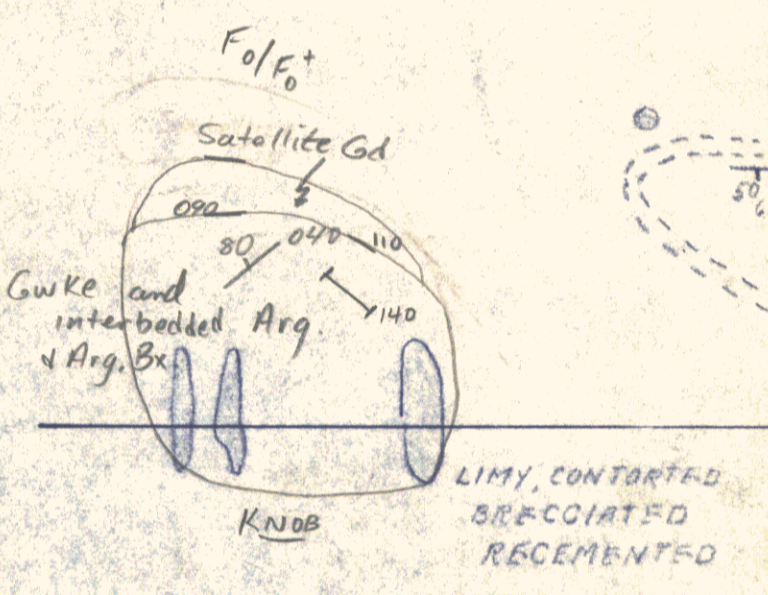 Fo/Fo+
Satellite Gd
090
80
040
110
50
Gwke and
interbedded Arg.
140
& Arg. Bx
LIMY, CONTORTED
BRECCIATED
RECEMENTED
KNOB